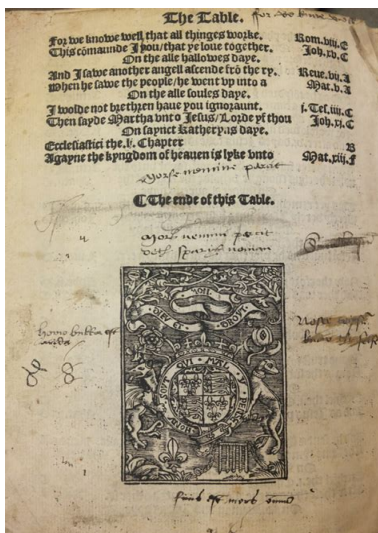 The Table.
For we knowe well that all thinges worke. Rom.viii.E
This cōmaunde I you/that ye loue together. Joh.xv.C
On the alle hallowes daye.
And I sawe another angell ascende frō the ry. Reue.vii.A
When he sawe the people/he went vp into a Mat.v.A
On the alle soules daye.
I wolde not brethren haue you ignoraunt. i.Tes.iiii.C
Then sayde Martha vnto Jesus/Lorde yf thou Joh.xi.C
On saynct Katheryns daye.
Ecclesiastici the.li.Chapter B
Agayne the kyngdom of heauen is lyke vnto Mat.xiii.f
Mors nemini parcit
❡The ende of this Table.
mors nemini parcit
doth spary noman
DIEV ET DROYT
HONI SOYT QVI MAL Y PENSE
finis est mors